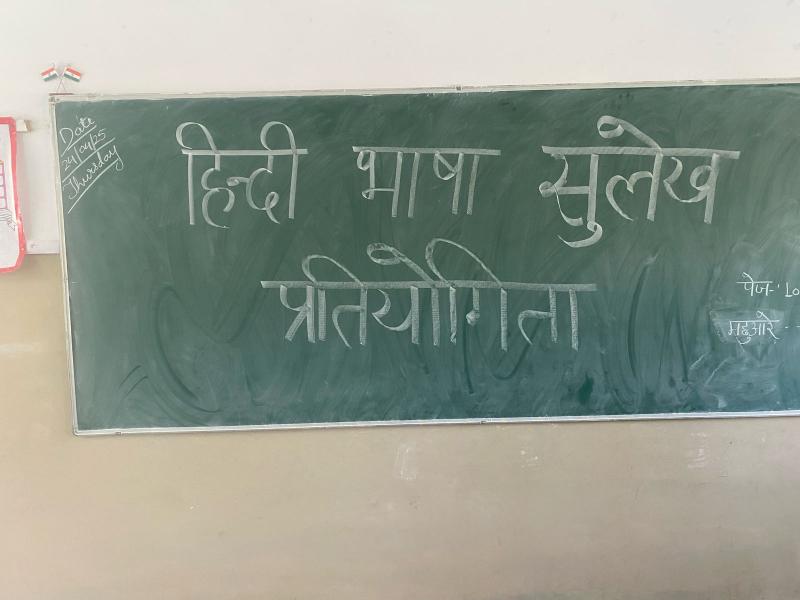 Date
24/04/25
Thursday
हिन्दी भाषा सुलेख
प्रतियोगिता
पेज-
मछुआरे